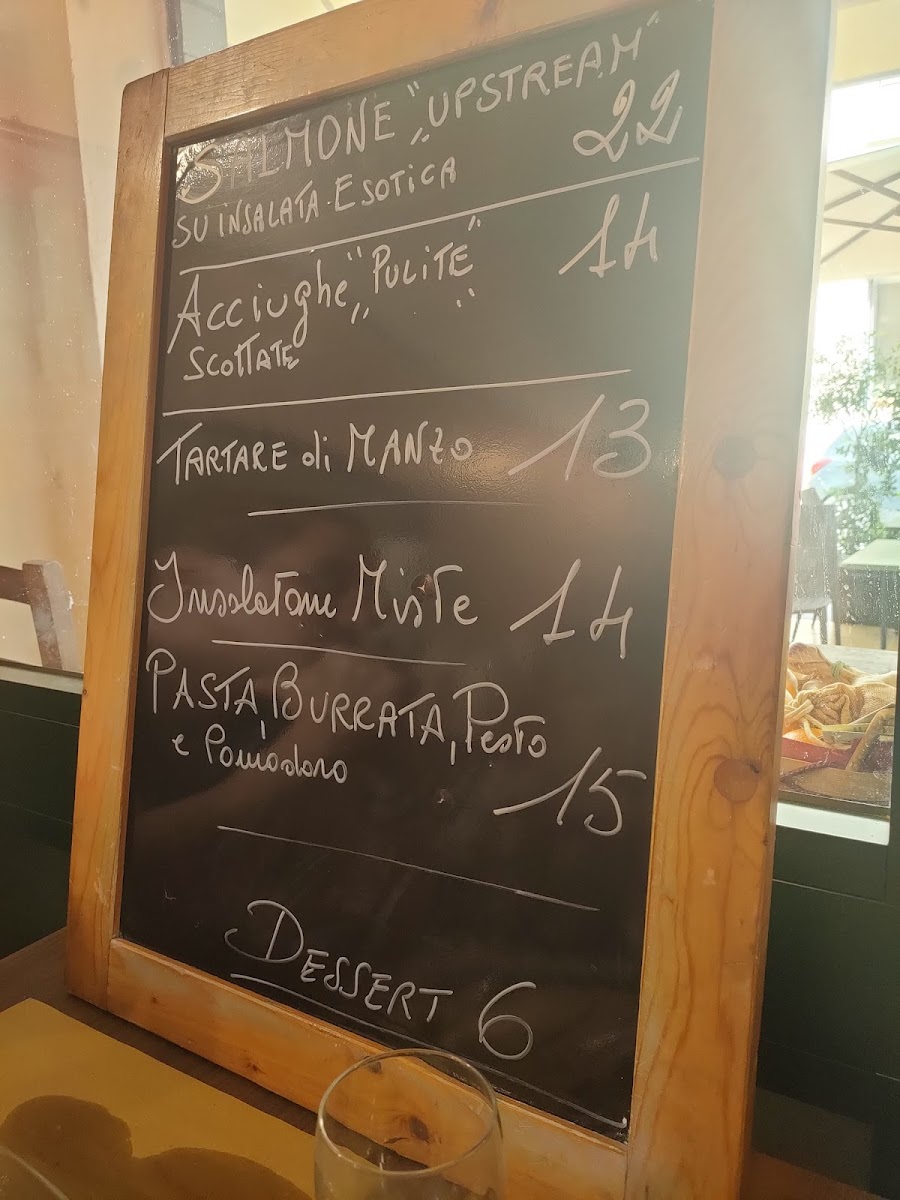 SALMONE "UPSTREAM"
SU INSALATA ESOTICA 22
Acciughe "PULITE" 14
SCOTTATE
TARTARE di MANZO 13
Insalatone Miste 14
PASTA, BURRATA, Pesto
e Pomodoro
15
DESSERT 6